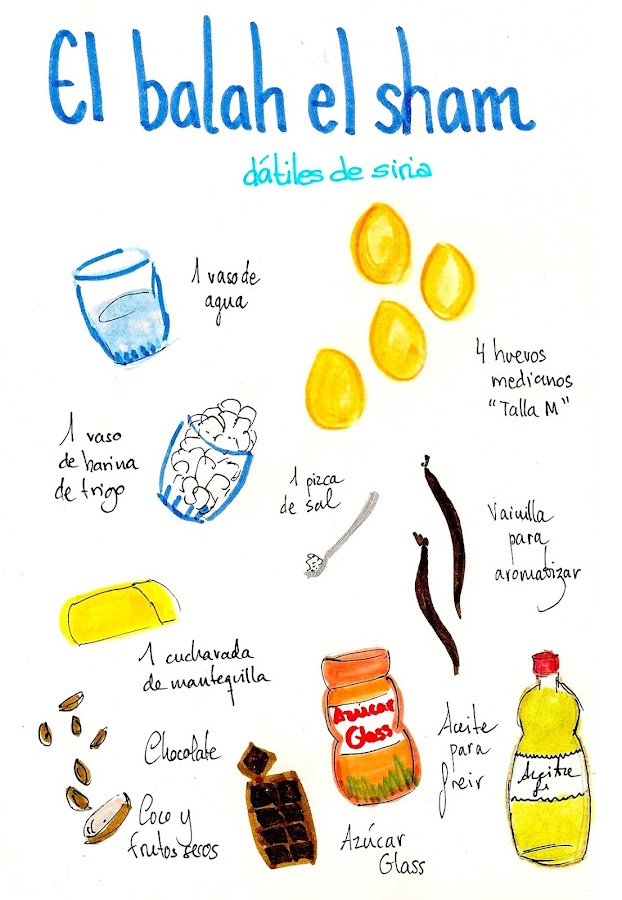 El balah el sham
dátiles de siria
1 vaso de
agua
4 huevos
medianos
"Talla M"
1 vaso
de harina
de trigo
1 pizca
de sal
Vainilla
para
aromatizar
1 cucharada
de mantequilla
Chocolate
Coco y
frutos secos
Azúcar
Glass
Azúcar
Glass
Aceite
para
freir